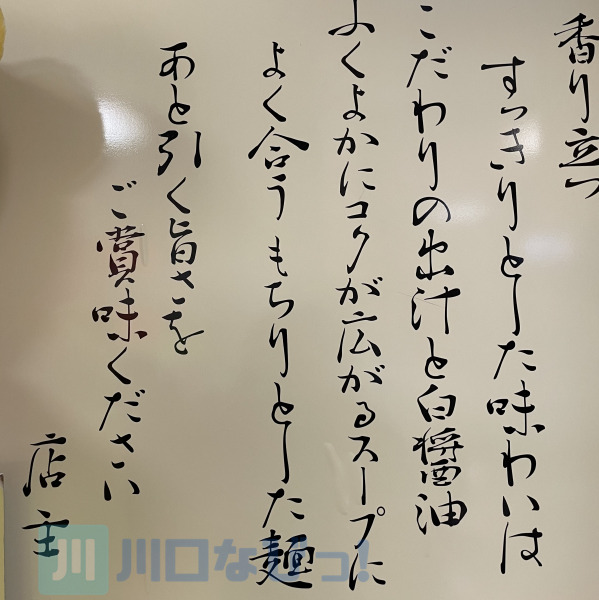 香り立つ
すっきりとした味わいは
こだわりの出汁と白醤油
ふくよかにコクが広がるスープに
よく合うもちりとした麺
あと引く旨さを
ご賞味ください
店主
川口なびっ!